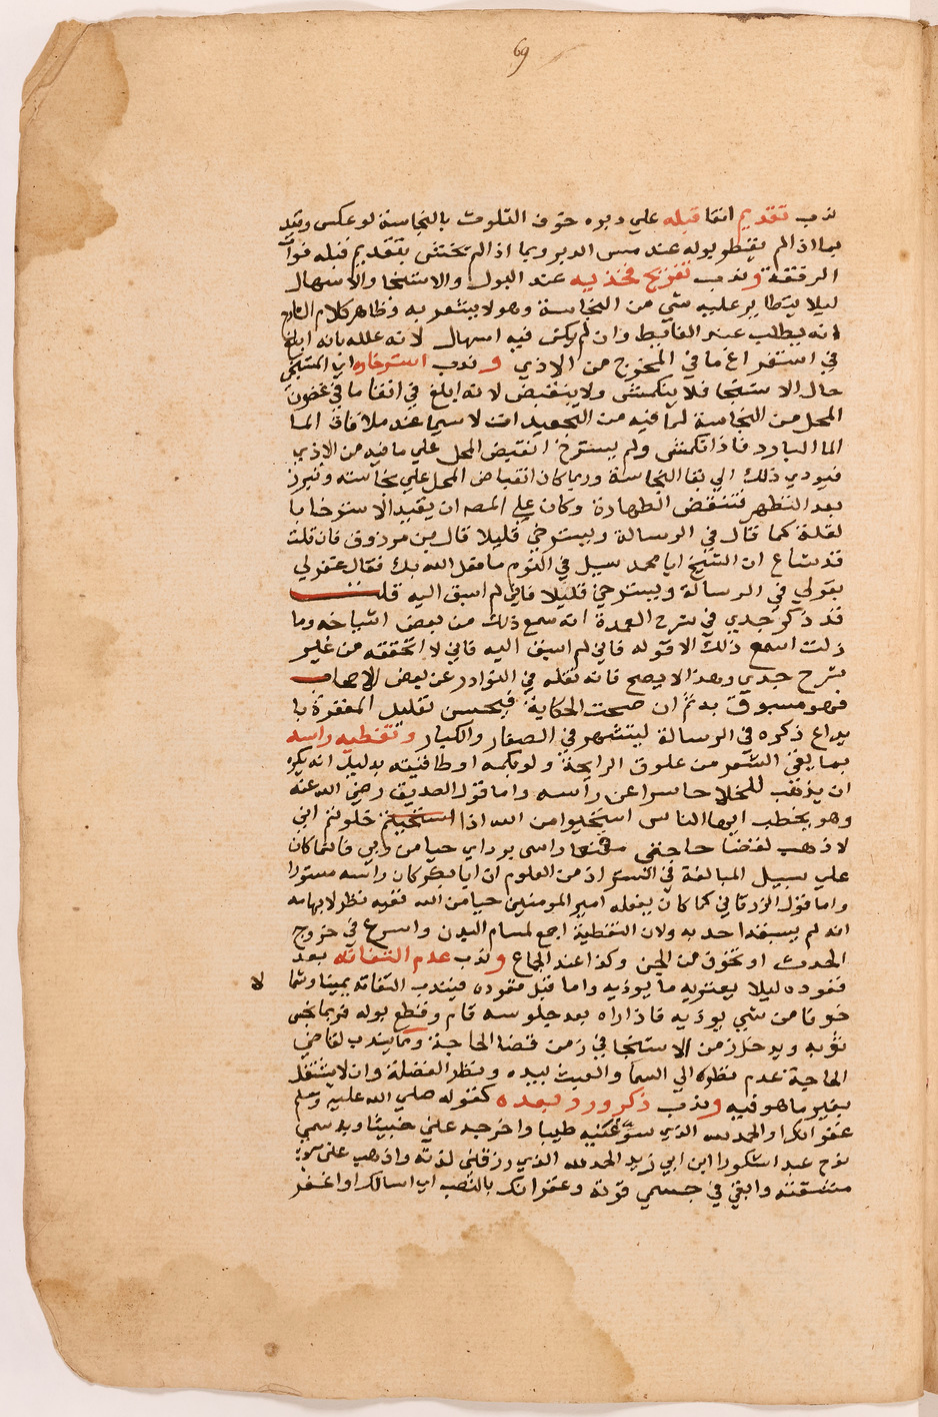 69
ندب تقديم انقا قبله علي دبره خوف التلوث بالنجاسة لو عكس وقيد
بما اذا لم يقطر بوله عند مس الدبر وبما اذا لم يختش بتقديم قبله فوات
الرفقة وندب تفريج فخذيه عند البول والاستنجا والاسهال
ليلا يتطاير عليه شي من النجاسة وهو لا يشعر به وظاهر كلام الشارح
انه يطلب عند الغايط وان لم يكن فيه اسهال لانه علله بانه ابلغ
في استفراغ ما في المخرج من الاذي وندب استرخاوه اي المستنجي
حال الاستنجا فلا ينكمش ولا ينقبض لانه ابلغ في انقا ما في غضون
المحل من النجاسة لما فيه من التجعيدات لا سيما عند ملاقاة الما
الما البارد فاذا انكمش ولم يسترخ انقبض المحل علي ما فيه من الاذي
فيودي ذلك الي بقا النجاسة وربما كان انقباض المحل علي نجاسته وتبرز
بعد التطهر فتنقض الطهارة وكان علي المصه ان يقيد الاسترخا با
لقلة كما قال في الرسالة ويسترخي قليلا قال بن مرزوق فان قلت
قد شاع ان الشيخ ابا محمد سيل في النوم ما فعل الله بك فقال غفر لي
بقولي في الرسالة ويسترخي قليلا فاني لم اسبق اليه قلت
قد ذكر جدي في شرح العمدة انه سمع ذلك من بعض اشياخه وما
زلت اسمع ذلك الا قوله فاني لم اسبق اليه فاني لا اتحققه من غير
شرح جدي وهذا لا يصح فانه نقله في النوادر عن بعض الاصحاب
فهو مسبوق به ثم ان صحت الحكاية فيحسن تعليل المغفرة با
بداع ذكره في الرسالة ليشتهر في الصغار والكبار وتغطيه راسه
بما يقي الشعر من علوق الرايحة ولو بكمه او طاقيته بدليل انه يكره
ان يذهب للخلا حاسرا عن راسه واما قول الصديق رضي الله عنه
وهو يخطب ايها الناس استحيوا من الله اذا استنجيتم خلوتم اني
لا ذهب لقضا حاجتي مقنعا راسي برداي حيا من ربي فانما كان
علي سبيل المبالغة في التستر اذ من المعلوم ان ابا بكر كان راسه مستورا
واما قول الزرقاني كما كان يفعله امير المومنين حيا من الله ففيه نظر لايهامه
انه لم يسبقه احد به ولان التغطية اجمع لمسام البدن واسرع في خروج
الحدث او تخوف من الجن وكذا عند الجماع وندب عدم التفاته بعد
قعوده ليلا يعتريه ما يوذيه واما قبل قعوده فيندب التفاته يمينا وشمالا
خوفا من شي يوذيه فاذا راه بعد جلوسه قام وقطع بوله فربما نجس
ثوبه ويدخل زمن الاستنجا في زمن قضا الحاجة ومما يندب لقاضي
الحاجة عدم نظره الي السما والعبث بيده ونظر الفضلة وان لا يشتغل
بغير ما هو فيه وندب ذكر ورد بعده كقوله صلي الله عليه وسلم
غفرانك او الحمد لله الذي سوغنيه طيبا واخرجه عني خبيثا وبه سمي
نوح عبدا شكورا ابن ابي زيد الحمد لله الذي رزقني لذته واذهب عني
مشقته وابقي في جسمي قوته وغفرانك بالنصب اي اسالك او اغفر